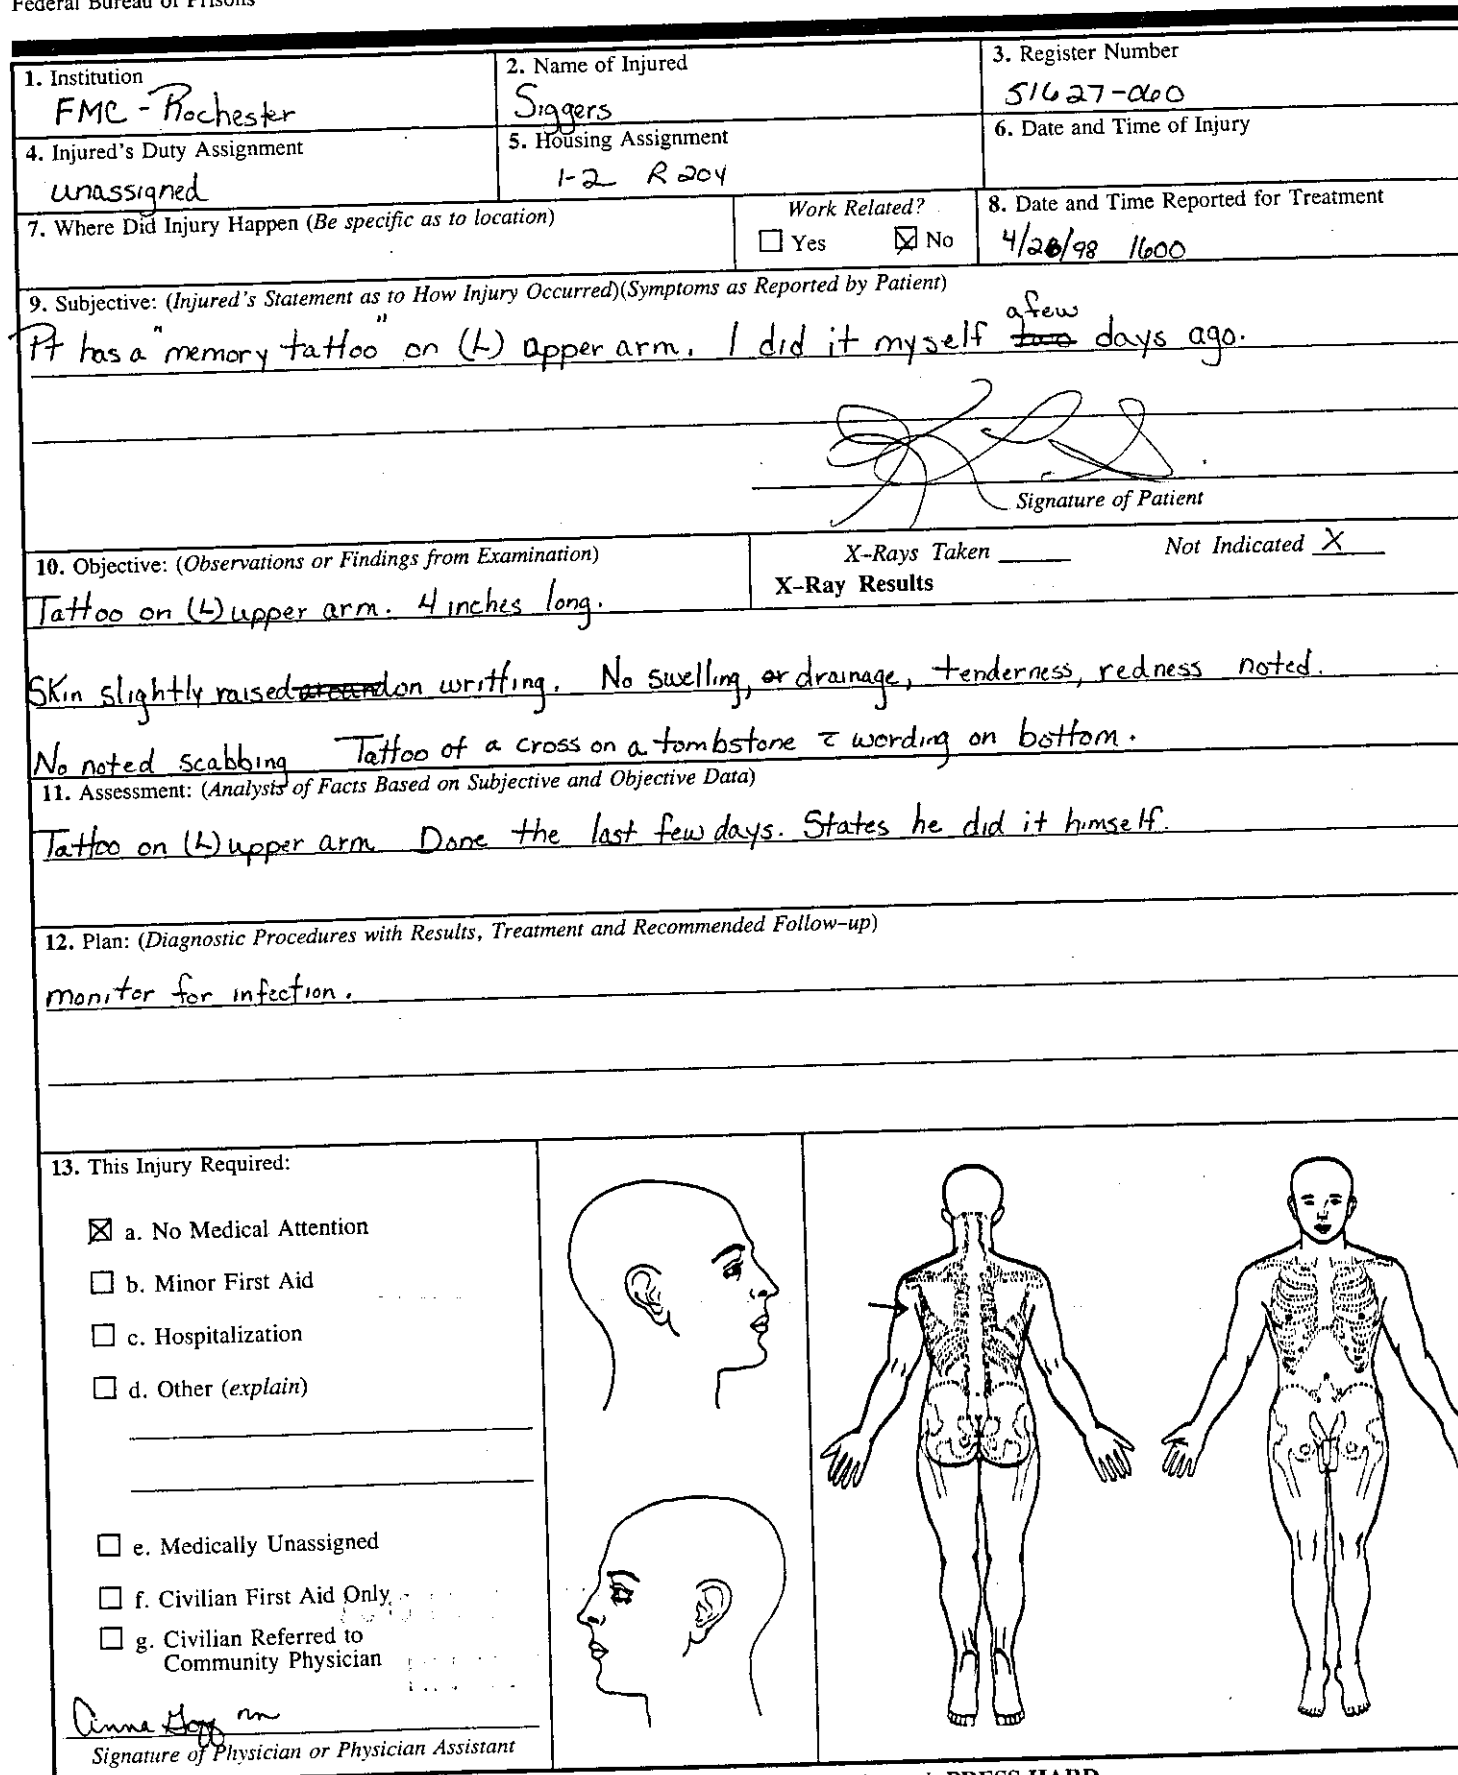 Federal Bureau of Prisons
1. Institution
FMC - Rochester
2. Name of Injured
Siggers
3. Register Number
51627-060
4. Injured's Duty Assignment
unassigned
5. Housing Assignment
1-2 R 204
6. Date and Time of Injury
7. Where Did Injury Happen (Be specific as to location)
Work Related?
Yes No
8. Date and Time Reported for Treatment
4/28/98 1600
9. Subjective: (Injured's Statement as to How Injury Occurred)(Symptoms as Reported by Patient)
a few
Pt has a "memory tattoo" on (L) upper arm. I did it myself two days ago.
Signature of Patient
10. Objective: (Observations or Findings from Examination)
X-Rays Taken Not Indicated X
X-Ray Results
Tattoo on (L) upper arm. 4 inches long.
Skin slightly raised around on writting. No swelling, or drainage, tenderness, redness noted.
No noted scabbing Tattoo of a cross on a tombstone c̄ wording on bottom.
11. Assessment: (Analysis of Facts Based on Subjective and Objective Data)
Tattoo on (L) upper arm Done the last few days. States he did it himself.
12. Plan: (Diagnostic Procedures with Results, Treatment and Recommended Follow-up)
monitor for infection.
13. This Injury Required:
a. No Medical Attention
b. Minor First Aid
c. Hospitalization
d. Other (explain)
e. Medically Unassigned
f. Civilian First Aid Only
g. Civilian Referred to
Community Physician
Anna rn
Signature of Physician or Physician Assistant
PRESS HARD